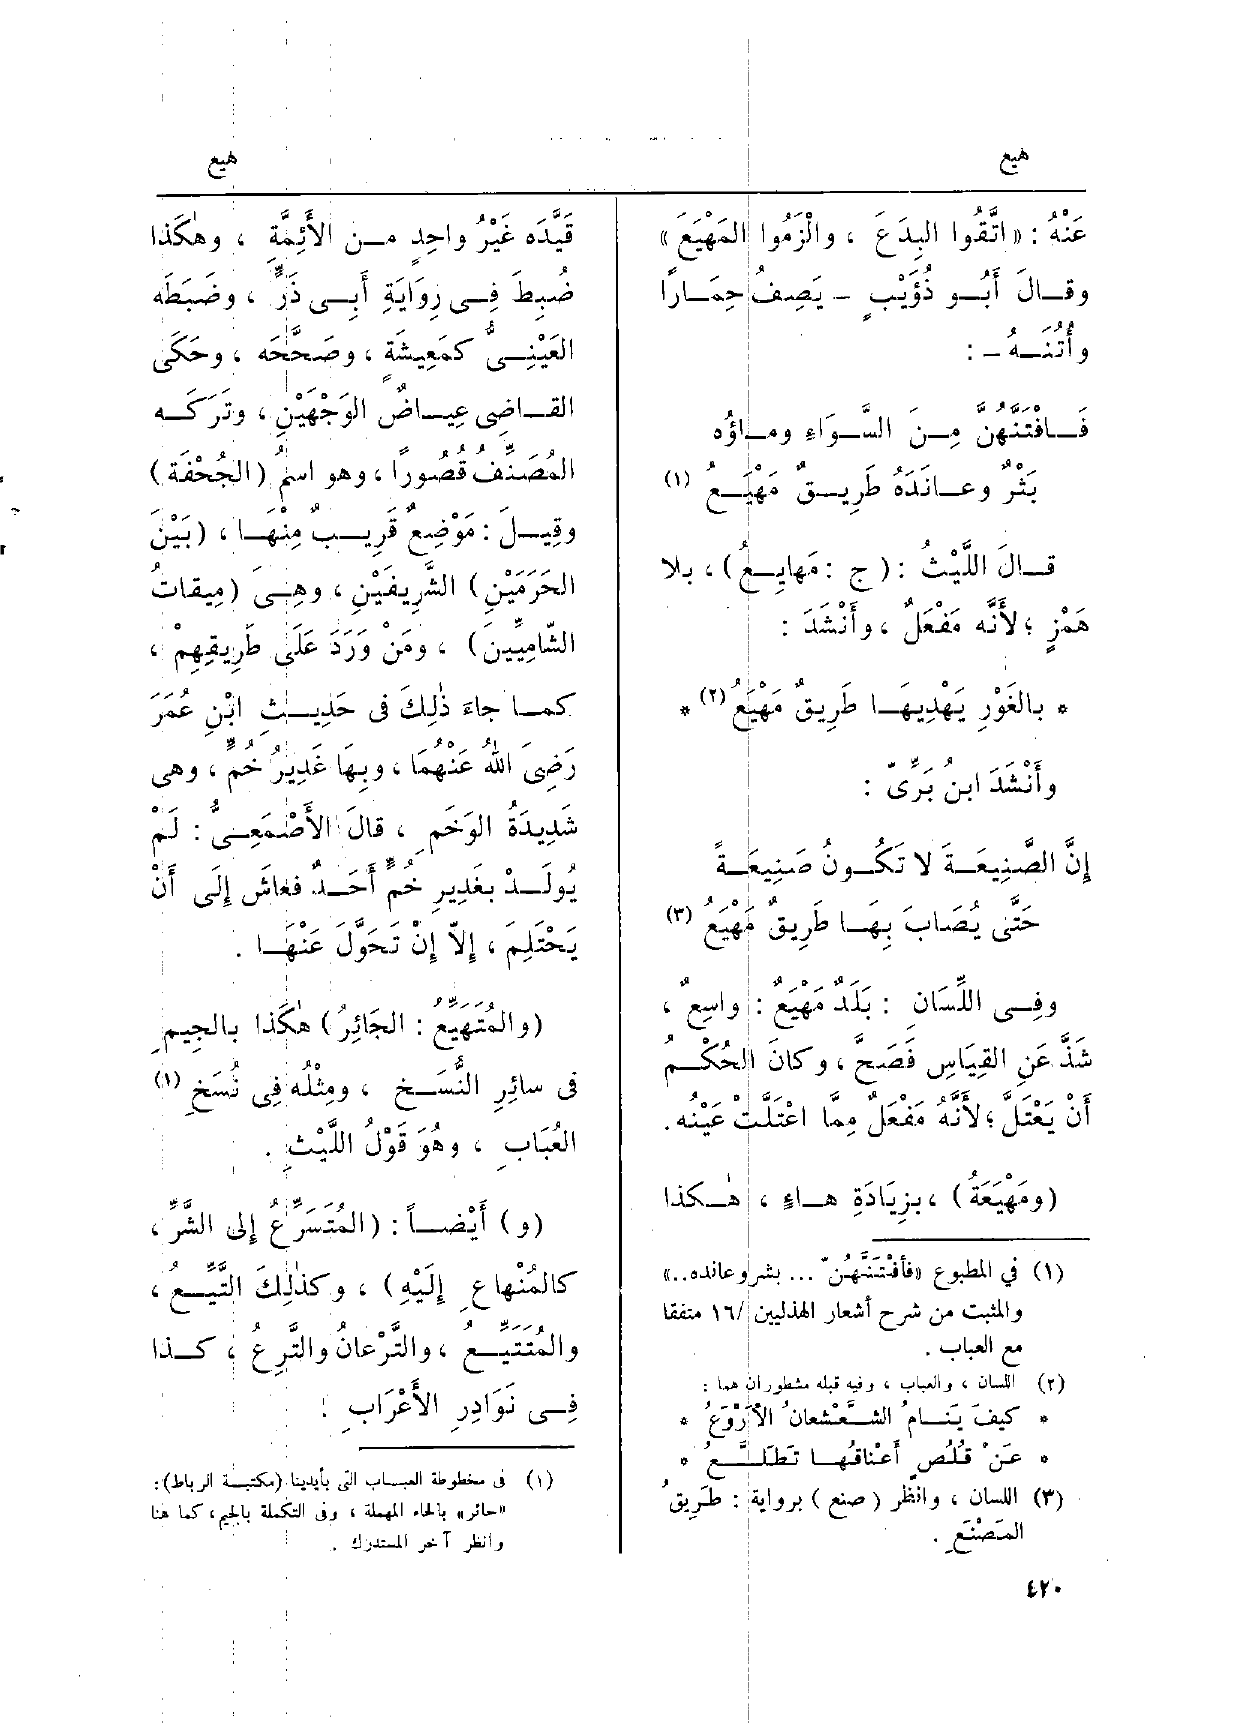 هيع
هيع
عَنْهُ : «اتَّقُوا البِدَعَ ، والْزَمُوا المَهْيَعَ»
وقـال أَبُـو ذُؤَيْبٍ – يَصِفُ حِمَـارًا
وأُتُنَـهُ – :
فَـافْتَنَّهُنَّ مِـنَ السَّـوَاءِ ومـاؤُه
بَثْرٌ وعـانَدَهُ طَرِيـقٌ مَهْيَـعُ (١)
قـالَ اللَّيْثُ : (ج : مَهايِـعُ) ، بلا
هَمْزٍ ؛ لأَنَّه مَفْعَلٌ ، وأَنْشَدَ :
* بالغَوْرِ يَهْدِيهَـا طَرِيقٌ مَهْيَعُ (٢) *
وأَنْشَدَ ابنُ بَرِّى :
إِنَّ الصَّنِيعَـةَ لا تَكُـونُ صَنِيعَـةً
حَتَّى يُصَابَ بِهَـا طَرِيقٌ مَهْيَعُ (٣)
وفِـى اللِّسَانِ : بَلَدٌ مَهْيَعٌ : واسِعٌ ،
شَذَّ عَنِ القِيَاسِ فَصَحَّ ، وكانَ الحُكْـمُ
أَنْ يَعْتَلَّ ؛ لأَنَّهُ مَفْعَلٌ مِمَّا اعْتَلَّتْ عَيْنُه.
(ومَهْيَعَةُ) ، بزِيَادَةِ هـاءٍ ، هٰـكذا
(١) في المطبوع «فأفْتَنَّهُنّ ... بشر وعانده..»
والمثبت من شرح أشعار الهذليين /١٦ متفقا
مع العباب .
(٢) اللسان ، والعباب ، وفيه قبله مشطوران هما :
* كيفَ يَنَـامُ الشَّعْشعانُ الأَرْوَعُ *
* عَنْ قُلُصٍ أَعْناقُهـا تَطَلَّـعُ *
(٣) اللسان ، وانظر (صنع) برواية : طَرِيقُ
المَصْنَعِ .
٤٢٠
قَيَّدَه غَيْرُ واحِدٍ مـن الأَئِمَّةِ ، وهٰكَذا
ضُبِطَ فِـى رِوَايَةِ أَبِـى ذَرٍّ ، وضَبَطَه
العَيْنِـىُّ كمَعِيشَةٍ ، وصَحَّحَه ، وحَكَى
القـاضِى عِيـاضٌ الوَجْهَيْنِ ، وتَرَكَـه
المُصَنِّفُ قُصُورًا ، وهو اسمُ (الجُحْفَةِ)
وقِيـلَ : مَوْضِعٌ قَرِيـبٌ مِنْهَـا ، (بَيْنَ
الحَرَمَيْنِ) الشَّرِيفَيْنِ ، وهِـىَ (مِيقاتُ
الشّامِيِّينَ) ، ومَنْ وَرَدَ عَلَى طَرِيقِهِمْ ،
كمـا جاءَ ذٰلِكَ فى حَدِيـثِ ابْنِ عُمَرَ
رَضِىَ اللهُ عَنْهُمَا ، وبِهَا غَدِيرُ خُمٍّ ، وهى
شَدِيدَةُ الوَخَمِ ، قالَ الأَصْمَعِـىُّ : لَمْ
يُولَـدْ بغَدِيرِ خُمٍّ أَحَـدٌ فعَاشَ إِلَى أَنْ
يَحْتَلِمَ ، إِلاّ إِنْ تَحَوَّلَ عَنْهَـا .
(والمُتَهَيِّعُ : الجَائِرُ) هٰكَذا بالجِيمِ
فى سائِرِ النُّسَـخِ ، ومِثْلُه فِى نُسَخِ (١)
العُبَابِ ، وهُوَ قَوْلُ اللَّيْثِ .
(و) أَيْضـاً : (المُتَسَرِّعُ إِلى الشَّرِّ ،
كالمُنْهاعِ إِلَيْهِ) ، وكذٰلِكَ التَّيِّـعُ ،
والمُتَتَيِّـعُ ، والتَّرْعانُ والتَّرِعُ ، كـذا
فِـى نَوَادِرِ الأَعْرَابِ .
(١) فى مخطوطة العبـاب التى بأيدينا (مكتبـة الرباط) :
«حائر» بالحاء المهملة ، وفى التكملة بالجيم ، كما هنا
وانظر آخر المستدرك .